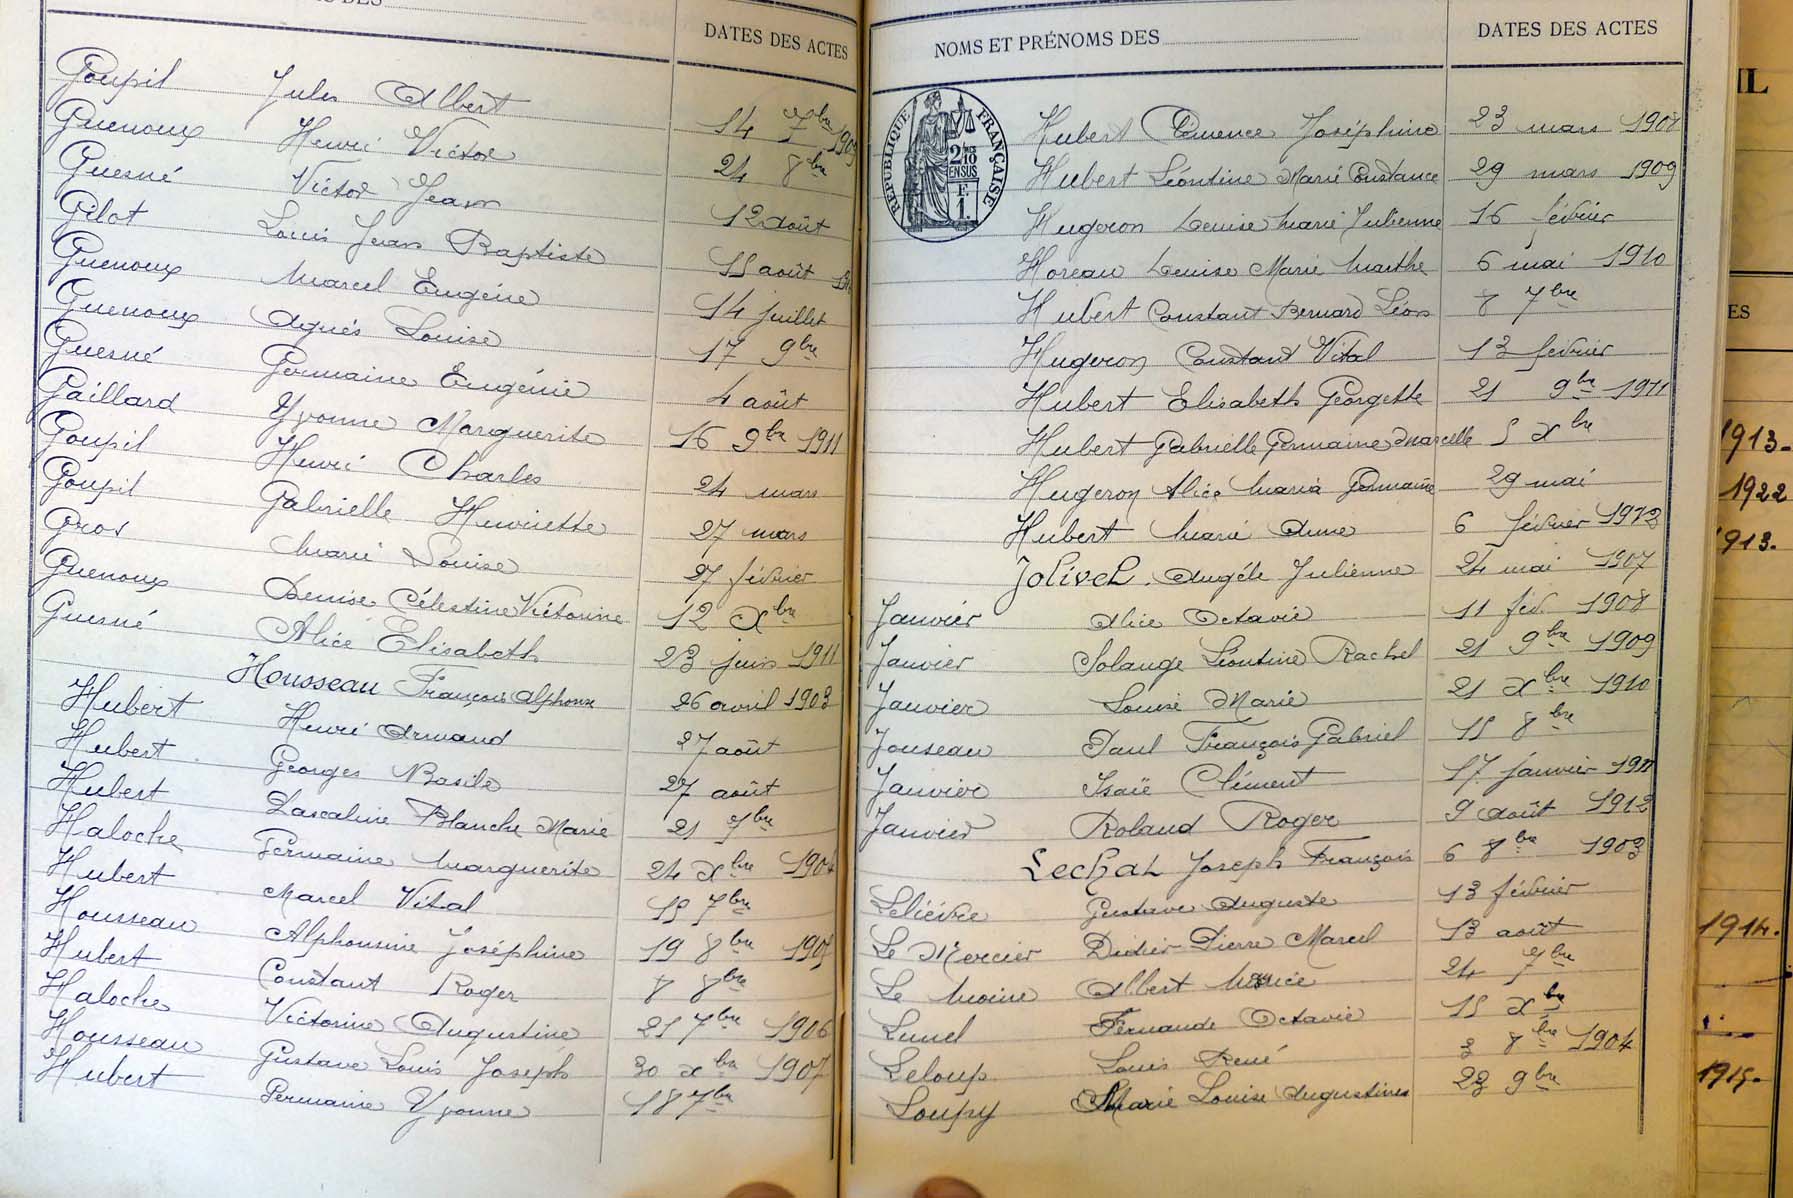 DES
DATES DES ACTES
Goupil Jules Albert 14 7bre 1909
Guenoux Henri Victor 24 8bre
Guesné Victor Jean 12 août
Gilot Louis Jean Baptiste 15 août
Guenoux Marcel Eugène 14 juillet
Guenoux Agnès Louise 17 9bre
Guesné Germaine Eugénie 4 août
Gaillard Yvonne Marguerite 16 9bre 1911
Goupil Henri Charles 24 mars
Goupil Gabrielle Henriette 27 mars
Gros Marie Louise 27 février
Guenoux Denise Célestine Victorine 12 Xbre
Guesné Alice Elisabeth 23 juin 1911
Housseau François Alphonse 26 avril 1903
Hubert Henri Armand 27 août
Hubert Georges Basile 27 août
Hubert Pascaline Blanche Marie 21 7bre
Haloche Germaine Marguerite 24 Xbre 1904
Hubert Marcel Vital 15 7bre
Housseau Alphonsine Joséphine 19 8bre
Hubert Constant Roger 8 8bre
Haloche Victorine Augustine 21 7bre 1906
Housseau Gustave Louis Joseph 30 Xbre 1907
Hubert Germaine Yvonne 18 7bre
NOMS ET PRÉNOMS DES
DATES DES ACTES
RÉPUBLIQUE FRANÇAISE
2/10
EN SUS
F.
1.
Hubert Clémence Joséphine 23 mars 1908
Hubert Léontine Marie Constance 29 mars 1909
Hugeron Louise Marie Julienne 16 février
Horeau Louise Marie Marthe 6 mai 1910
Hubert Constant Bernard Léon 8 7bre
Hugeron Constant Vital 13 février
Hubert Elisabeth Georgette 21 9bre 1911
Hubert Gabrielle Germaine Marcelle 5 Xbre
Hugeron Alice Maria Germaine 29 mai
Hubert Marie Anne 6 février
Jolivet Angèle Julienne 24 mai 1907
Janvier Alice Octavie 11 fév. 1908
Janvier Solange Léontine Rachel 21 9bre 1909
Janvier Louise Marie 21 Xbre 1910
Jouseau Paul François Gabriel 15 8bre
Janvier Isaïe Clément 17 janvier 1911
Janvier Roland Roger 9 août 1912
Lechat Joseph François 6 8bre 1903
Lelièvre Gustave Auguste 13 février
Le Mercier Didier Pierre Marcel 13 août
Le Moine Albert 24 7bre
Lunel Fernande Octavie 15 Xbre
Leloup Louis René 3 8bre 1904
Loupy Marie Louise Augustine 23 9bre
IL
ES
1913.
1922
1913.
1914.
1915.